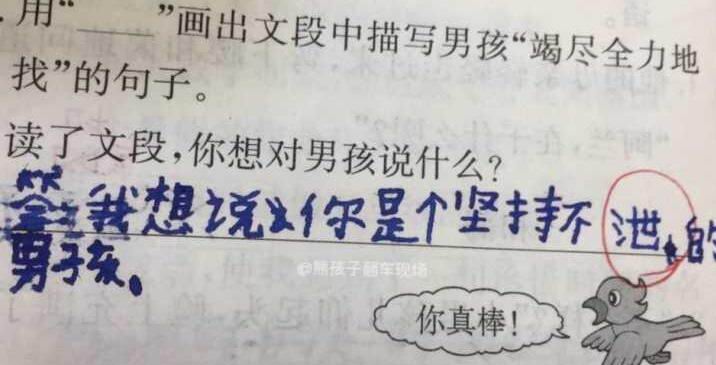 .用“ ”画出文段中描写男孩“竭尽全力地
找”的句子。
读了文段,你想对男孩说什么?
答:我想说:你是个坚持不泄的
男孩。
@熊孩子翻车现场
你真棒!